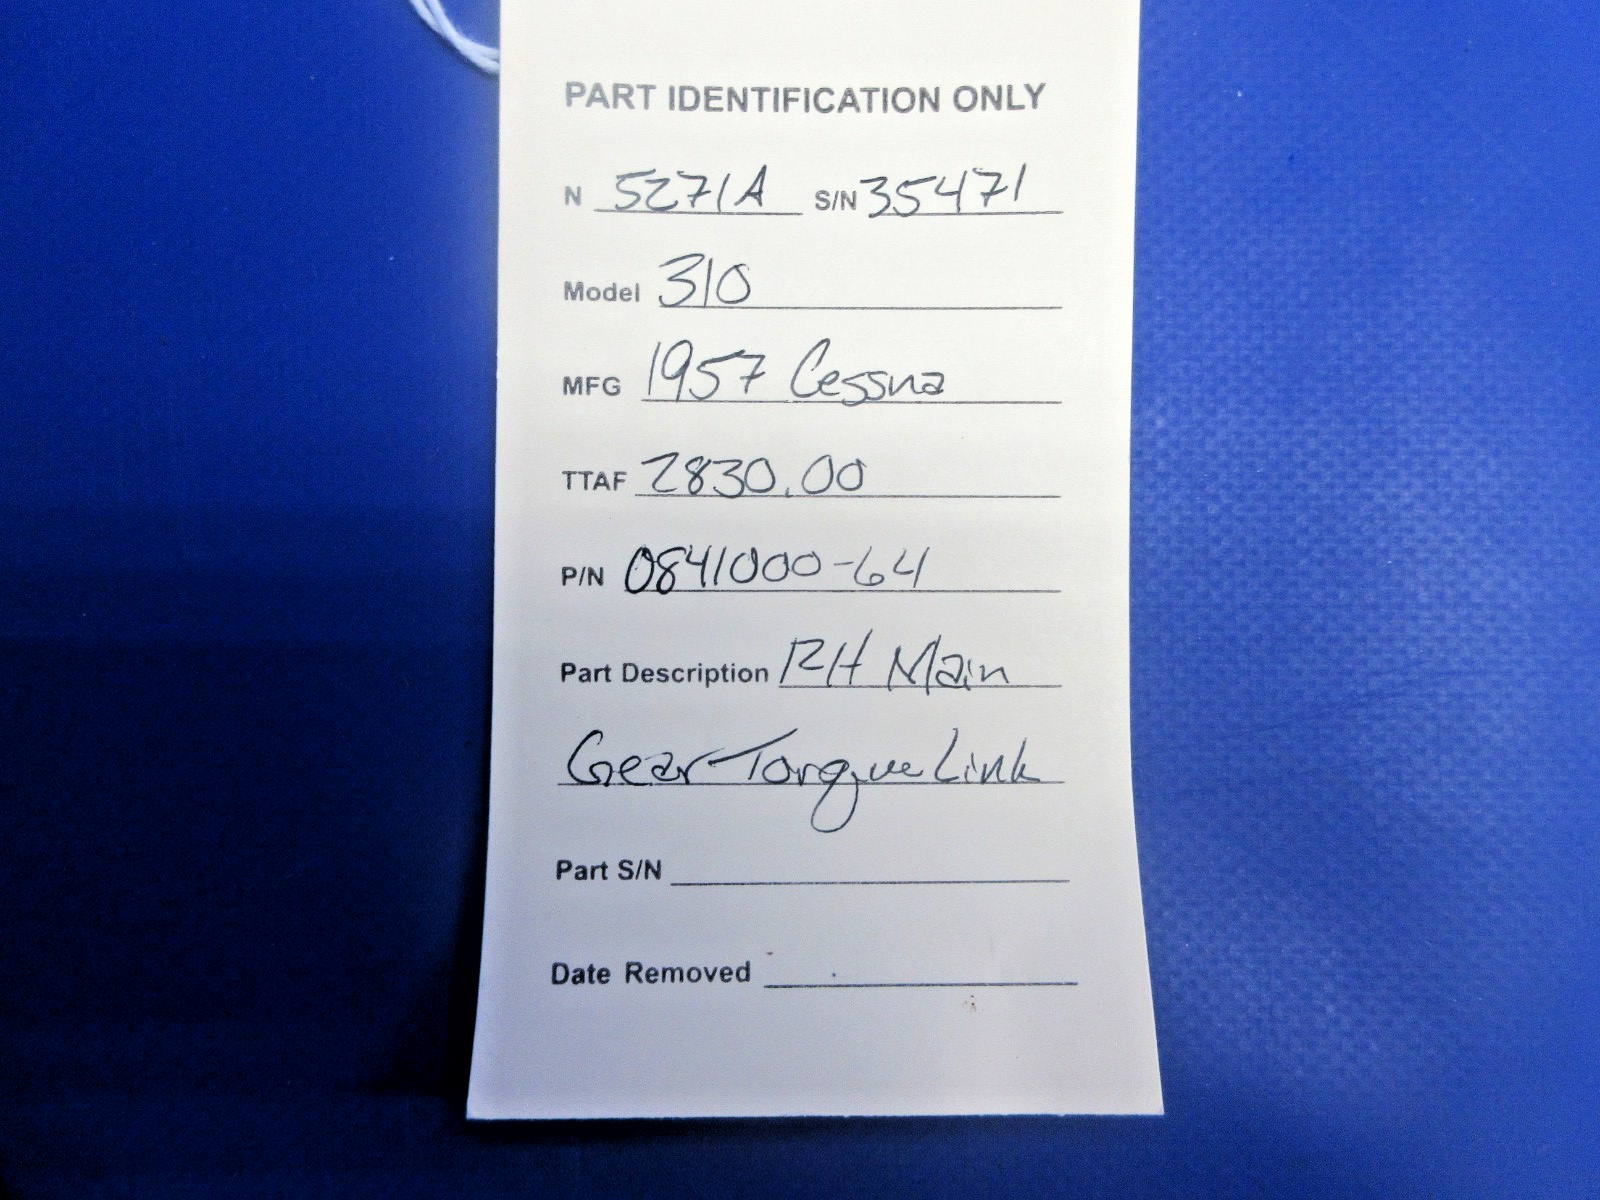 PART IDENTIFICATION ONLY
N 5271A S/N 35471
Model 310
MFG 1957 Cessna
TTAF 2830.00
P/N 0841000-64
Part Description RH Main
Gear Torque Link
Part S/N
Date Removed